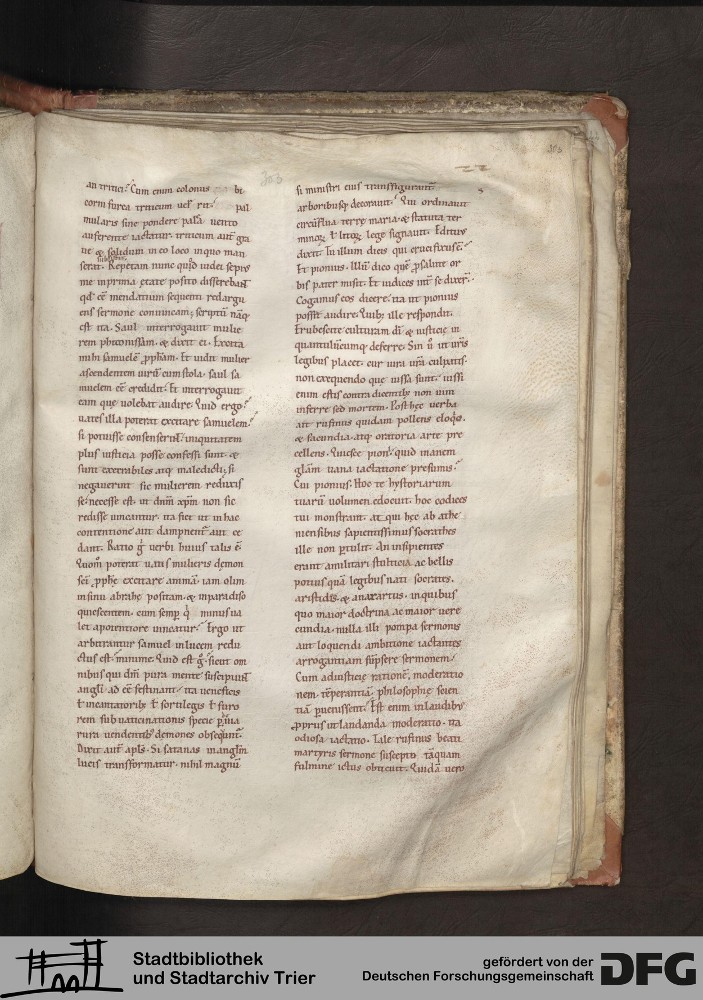 an tritici. Cum enim colonus bi
corni furca triticum uel pal
mularis sine pondere palea uento
auferente iactatur. triticum aut gra
ue & solidum in eo loco in quo man
serat. Repetam nunc quod iudei sepis
me in prima ętate posito disserebant
qd eē mendatium sequenti redargu
ens sermone conuincam. scriptū nāq
est ita. Saul interrogauit mulie
rem phitonissam. & dixit ei. Excita
mihi samuelē ꝓpham. Et uidit mulier
ascendentem uirū cum stola. saul sa
muelem eē credidit. Et interrogauit
eum quę uolebat audire. Quid ergo?
uates illa poterat excitare samuelem?
si potuisse consenserint. iniquitatem
plus iusticia posse confessi sunt. &
sunt execrabiles atq maledicti. si
negauerint sic mulierem reduxis
se. necesse est. ut dnm xpm non sic
redisse uincantur. ita fiet ut in hac
contentione aut dampnent aut ce
dant. Ratio g uerbi huius talis ē.
Quom poterat uatis mulieris demon
sci ꝓphę excitare animā. iam olim
in sinu abrahę positam. & in paradiso
quiescentem. cum semp q minus ua
let a potentiore uincatur? Ergo ut
arbitrantur samuel in lucem redu
ctus est. minime. Quid est g. sicut om
nibus qui dm pura mente susceperunt
angli ad eē festinant. ita ueneficis
ł incantatorib ł sortilegis ł furo
rem sub uaticinationis specie p deuia
rura uendentib demones obsequunt.
Dixit aut apls. Si satanas in anglm
lucis transformatur. nihil magnū
si ministri eius transfigurant
arboribusq decorauit. Qui ordinauit
circūflua terrę maria. & statuta ter
minor ł litor lege signauit. Editus
dixit. Tu illum dicis qui crucifixus ē?
Et pionius. Illū dico quē ꝓ salute or
bis pater misit. Et iudices int se dixer.
Cogamus eos dicere. ita ut pionius
possit audire. Quib ille respondit.
Erubescite culturam di & iusticię in
quantulūcumq deferre. Sin ū ut uris
legibus placet. cur iura ura culpatis
non exequendo quę iussa sunt. iussi
enim estis contra dicentib non uim
inferre sed mortem. Post hęc uerba
ait rufinus quidam pollens eloqo.
& facundia. atq oratoria arte pre
cellens. Quiesce pioni. quid inanem
glam uana iactatione presumis?
Cui pionius. Hoc te hystoriarum
tuarū uolumen edocuit. hoc codices
tui monstrant. at qui hęc ab athe
niensibus sapientissimus socrathes
ille non ptulit. An insipientes
erant a militari stulticia. ac bellis
potius quā legibus nati socrates.
aristides. & anaxartus. in quibus
quo maior doctrina. ac maior uere
cundia. nulla illi pompa sermonis
aut loquendi ambitione iactantes
arrogantiam sūpsere sermonem.
Cum ad iusticię rationē. moderatio
nem. tēperantiā. philosophię scien
tiā puenissent. Est enim in laudibs
ꝓprus ut laudanda moderatio. ita
odiosa iactatio. Tale rufinus beati
martyris sermone suscepto tāquam
fulmine ictus obticuit. Quidā uero
Stadtbibliothek
und Stadtarchiv Trier
gefördert von der
Deutschen Forschungsgemeinschaft
DFG